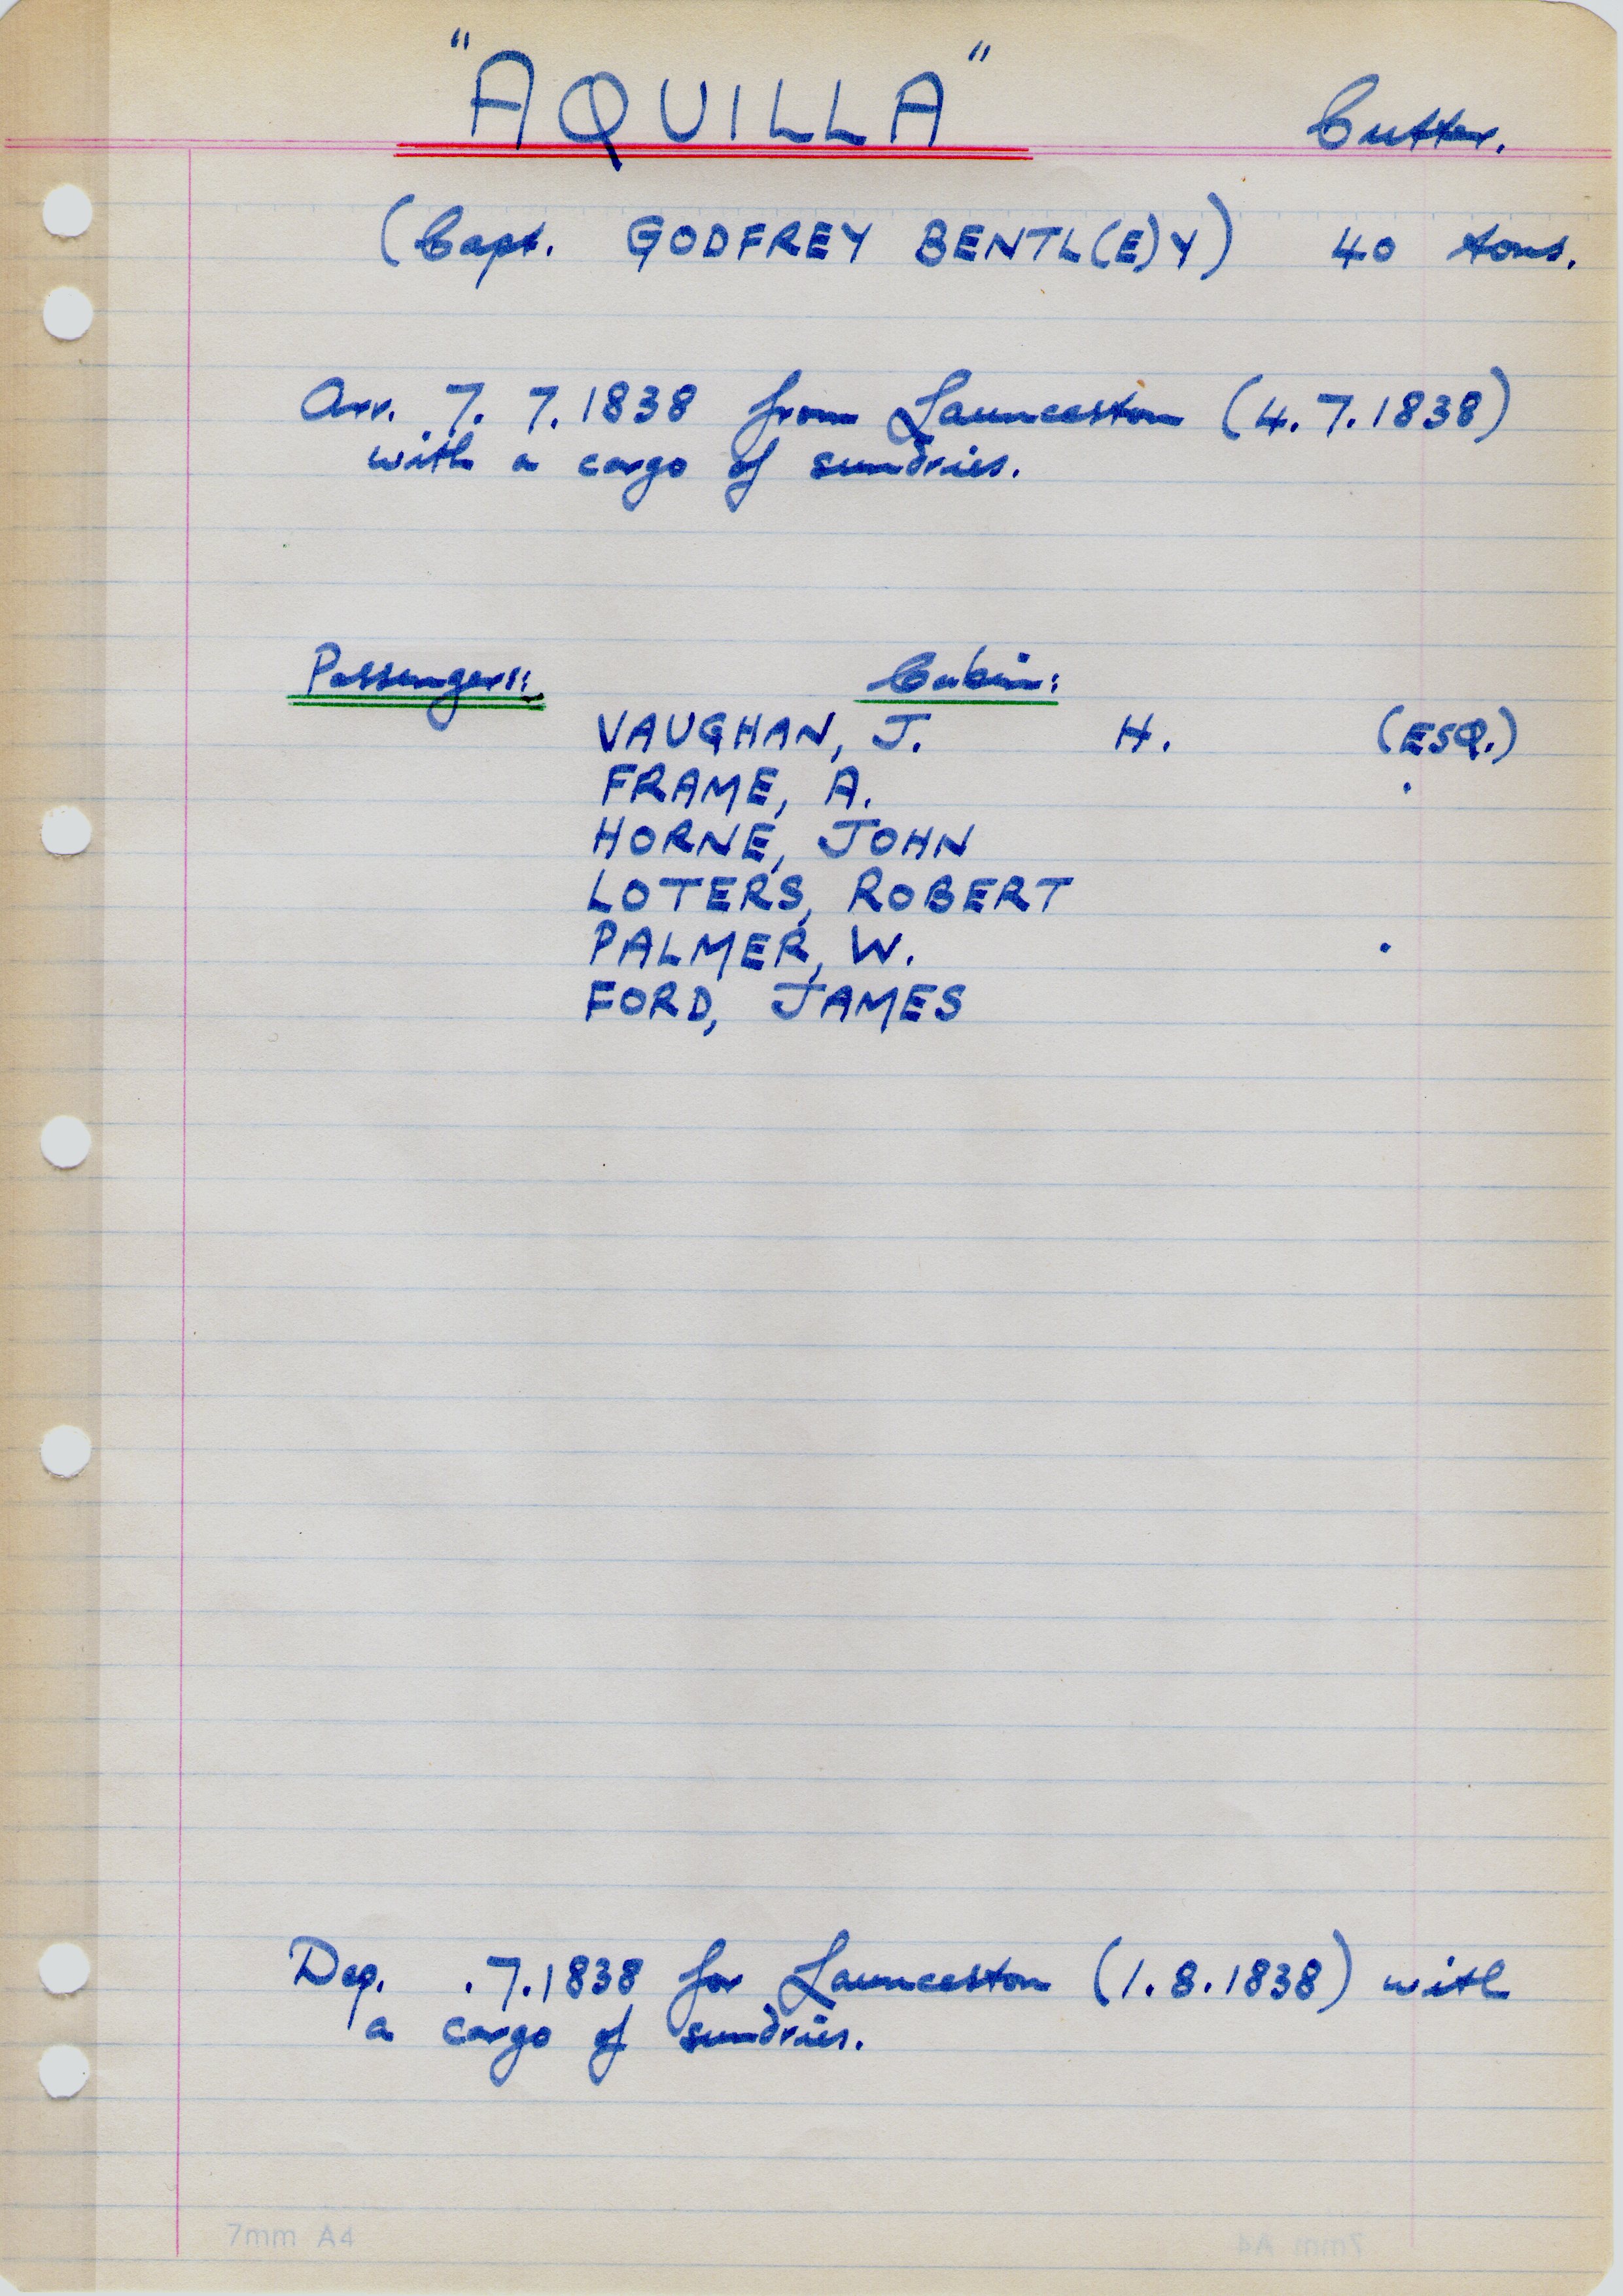 "AQUILLA" Cutter.
(Capt. GODFREY BENTL(E)Y) 40 tons.
Arr. 7. 7. 1838 from Launceston (4.7.1838)
with a cargo of sundries.
Passengers: Cabin:
VAUGHAN, J. H. (ESQ.)
FRAME, A.
HORNE, JOHN
LOTERS, ROBERT
PALMER, W.
FORD, JAMES
Dep. .7.1838 for Launceston (1.8.1838) with
a cargo of sundries.
7mm A4